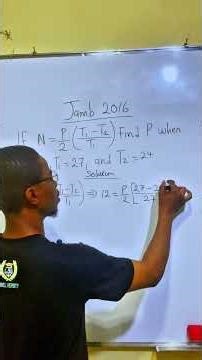 Jamb 2016
IF N = P/2 (T₁ - T₂ / T₁) Find P when
T₁ = 27, and T₂ = 24
Solution
T₁ - T₂ / T₁) ⇒ 12 = P/2 [27 - 2 / 27